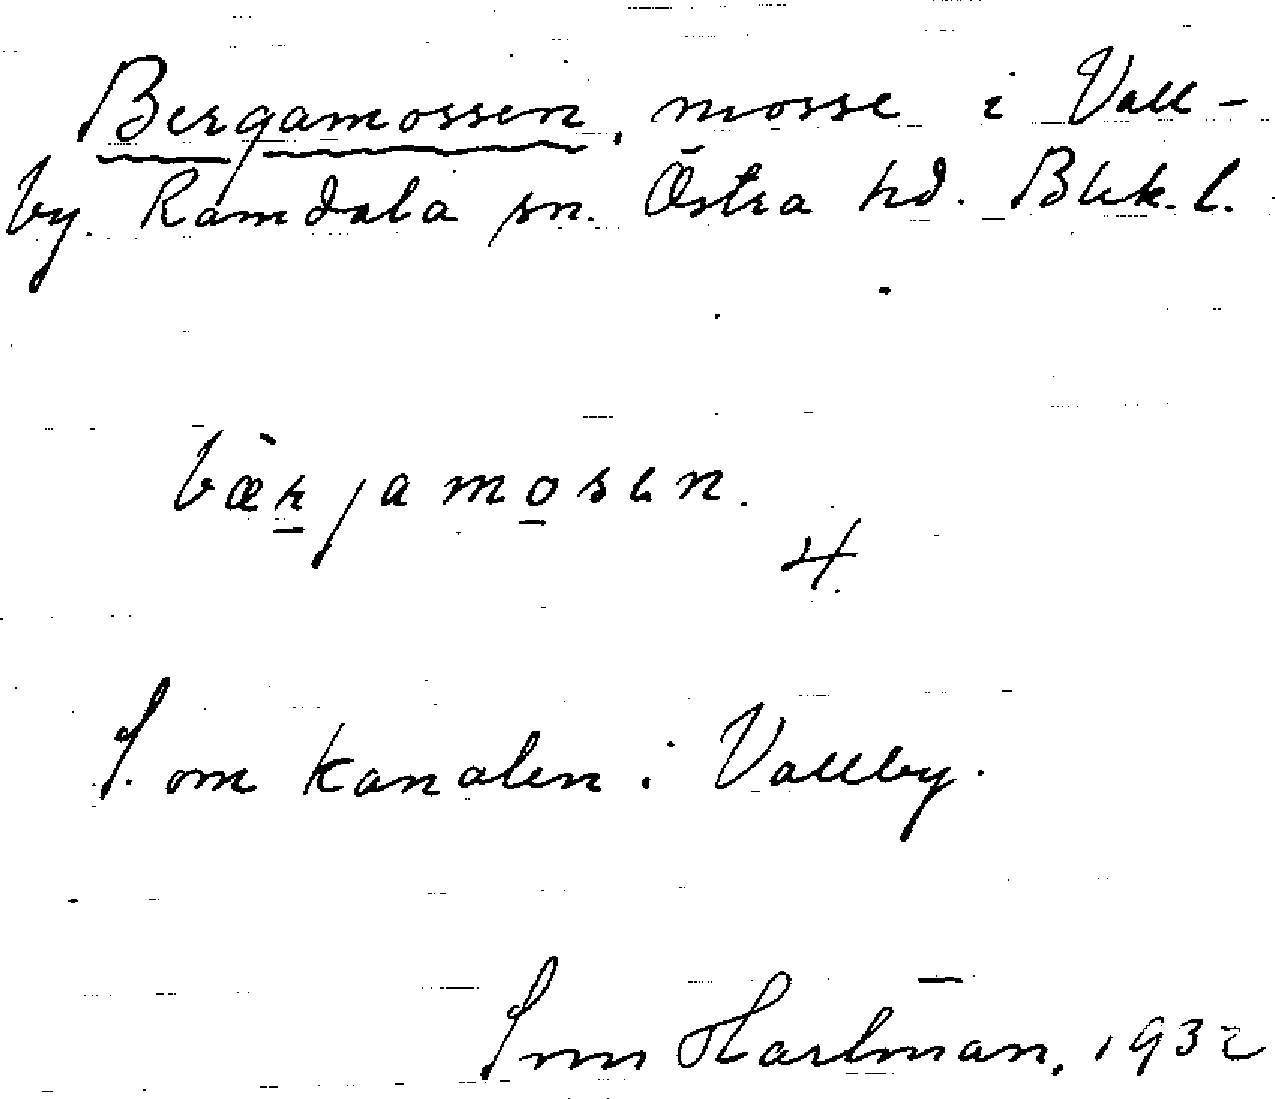 Bergamossen, mosse i Vall-
by. Ramdala sn. Östra hd. Blek. l.
bæ̀rjamosen.
4
S. om kanalen i Vallby.
Sven Hartman, 1932